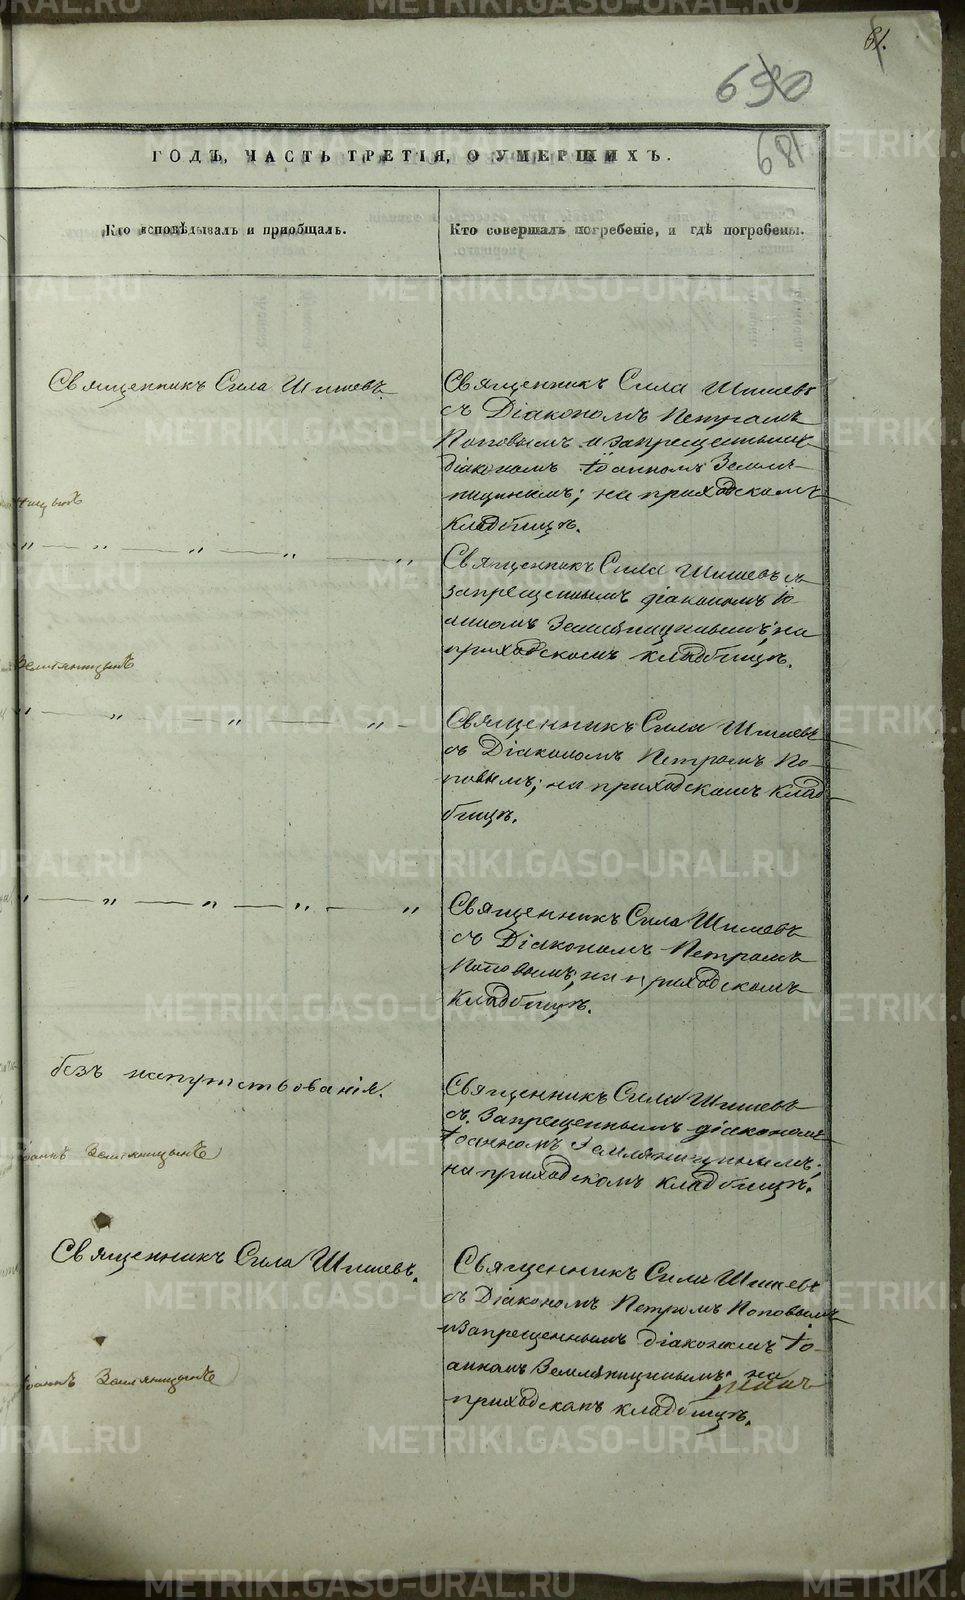 61.
650
681
ГОДЪ, ЧАСТЬ ТРЕТІЯ, О УМЕРШИХЪ.
Кто исповѣдывалъ и приобщалъ.
Кто совершалъ погребеніе, и гдѣ погребены.
Священникъ Сила Шишевъ.
Священникъ Сила Шишевъ
съ Діакономъ Петромъ
Поповымъ и запрещеннымъ
діакономъ Іоанномъ Земля-
ницинымъ; на приходскомъ
кладбищѣ.
Священникъ Сила Шишевъ съ
запрещеннымъ діакономъ Іо-
анномъ Земляницинымъ; на
приходскомъ кладбищѣ.
Земляницынъ
Священникъ Сила Шишевъ
съ Діакономъ Петромъ По-
повымъ; на приходскомъ клад-
бищѣ.
Священникъ Сила Шишевъ
съ Діакономъ Петромъ
Поповымъ; на приходскомъ
кладбищѣ.
безъ напутствованія.
Священникъ Сила Шишевъ
съ запрещеннымъ діакономъ
Іоанномъ Земляницинымъ;
на приходскомъ кладбищѣ.
Земляницынъ
Священникъ Сила Шишевъ.
Священникъ Сила Шишевъ
съ Діакономъ Петромъ Поповымъ
и запрещеннымъ діакономъ Іо-
анномъ Земляницинымъ на
приходскомъ кладбищѣ.
Земляницынъ
METRIKI.GASO-URAL.RU